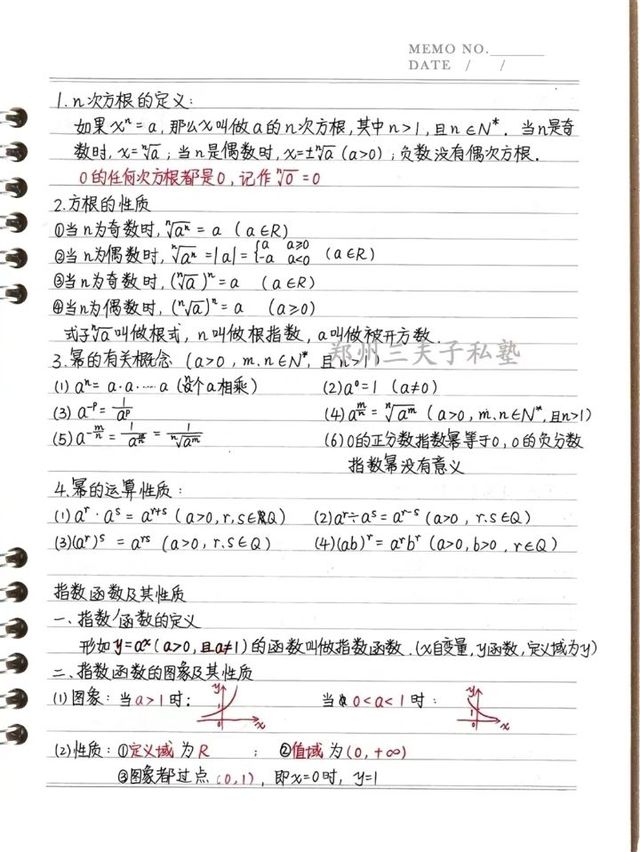 MEMO NO.
DATE / /
1. n次方根的定义:
如果xⁿ=a,那么x叫做a的n次方根,其中n>1,且n∈N*. 当n是奇
数时, x=ⁿ√a; 当n是偶数时, x=±ⁿ√a (a>0); 负数没有偶次方根.
0的任何次方根都是0, 记作 ⁿ√0=0
2.方根的性质
①当n为奇数时, ⁿ√aⁿ = a (a∈R)
②当n为偶数时, ⁿ√aⁿ = |a| = { a a≥0 -a a<0 (a∈R)
③当n为奇数时, (ⁿ√a)ⁿ = a (a∈R)
④当n为偶数时, (ⁿ√a)ⁿ = a (a≥0)
式子ⁿ√a叫做根式, n叫做根指数, a叫做被开方数.
郑州三夫子私塾
3.幂的有关概念 (a>0, m.n∈N*, 且n>1)
(1) aⁿ= a·a·…·a (n个a相乘) (2) a⁰=1 (a≠0)
(3) a^{-p} = 1/a^p (4) a^{m/n} = ⁿ√a^m (a>0, m.n∈N*,且n>1)
(5) a^{-m/n} = 1/a^{m/n} = 1/ⁿ√a^m (6) 0的正分数指数幂等于0, 0的负分数
指数幂没有意义
4.幂的运算性质:
(1) a^r·a^s = a^{r+s} (a>0, r,s∈Q) (2) a^r÷a^s = a^{r-s} (a>0, r.s∈Q)
(3) (a^r)^s = a^{rs} (a>0, r.s∈Q) (4) (ab)^r = a^r b^r (a>0, b>0, r∈Q)
指数函数及其性质
一、指数函数的定义
形如y=a^x (a>0,且a≠1)的函数叫做指数函数. (x自变量, y函数, 定义域为y)
二、指数函数的图象及其性质
(1)图象: 当a>1时: y 1 0 x 当0<a<1时: y 1 0 x
(2)性质: ①定义域为R ; ②值域为(0,+∞)
③图象都过点(0,1), 即x=0时, y=1